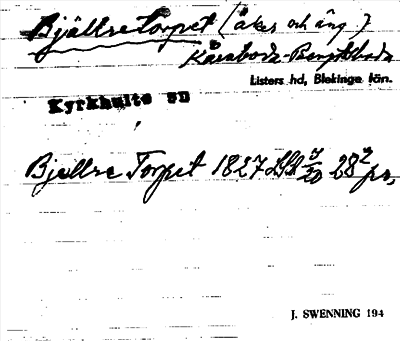 Bjällretorpet (åker och äng)
Kåraboda-Bengtsboda
Listers hd, Blekinge län.
Kyrkhults SD
Bjellre Torpet 1827 7/20 28
J. SWENNING 194